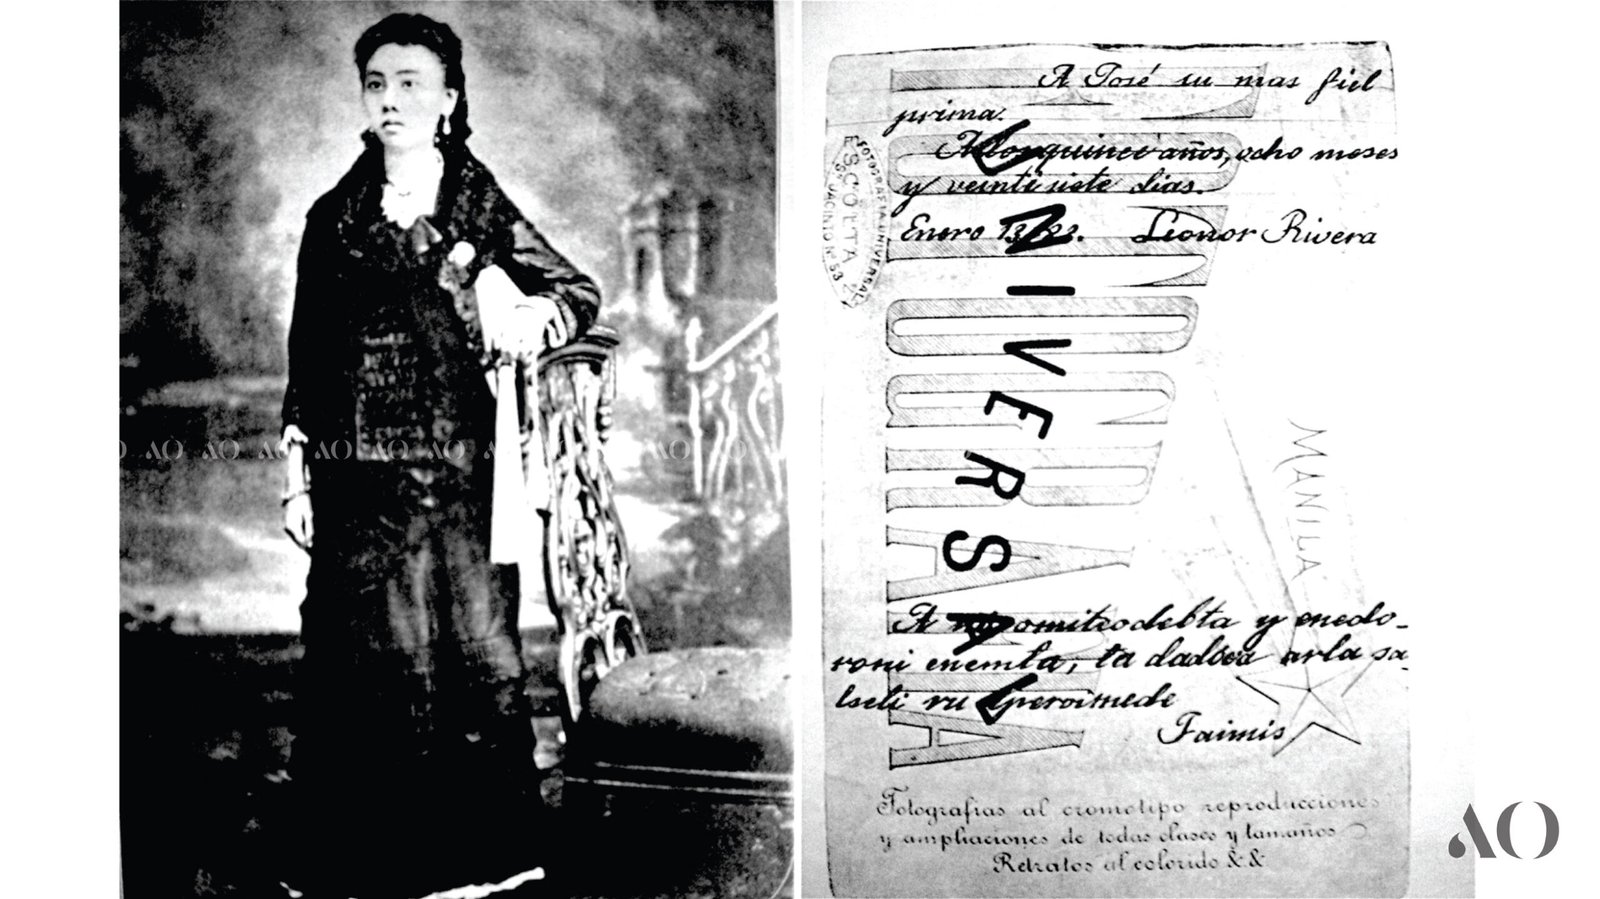 A José su mas fiel
prima.
A los quince años, ocho meses
y veinti siete dias.
Enero Leonor Rivera
FOTOGRAFIA UNIVERSAL
ESCOLTA
S. JACINTO Nº 53
UNIVERSAL
MANILA
A y enedo-
roni enemla, ta arla sa-
lseli ru
Faimis
Fotografias al cromotipo reproducciones
y ampliaciones de todas clases y tamaños
Retratos al colorido && 
AO